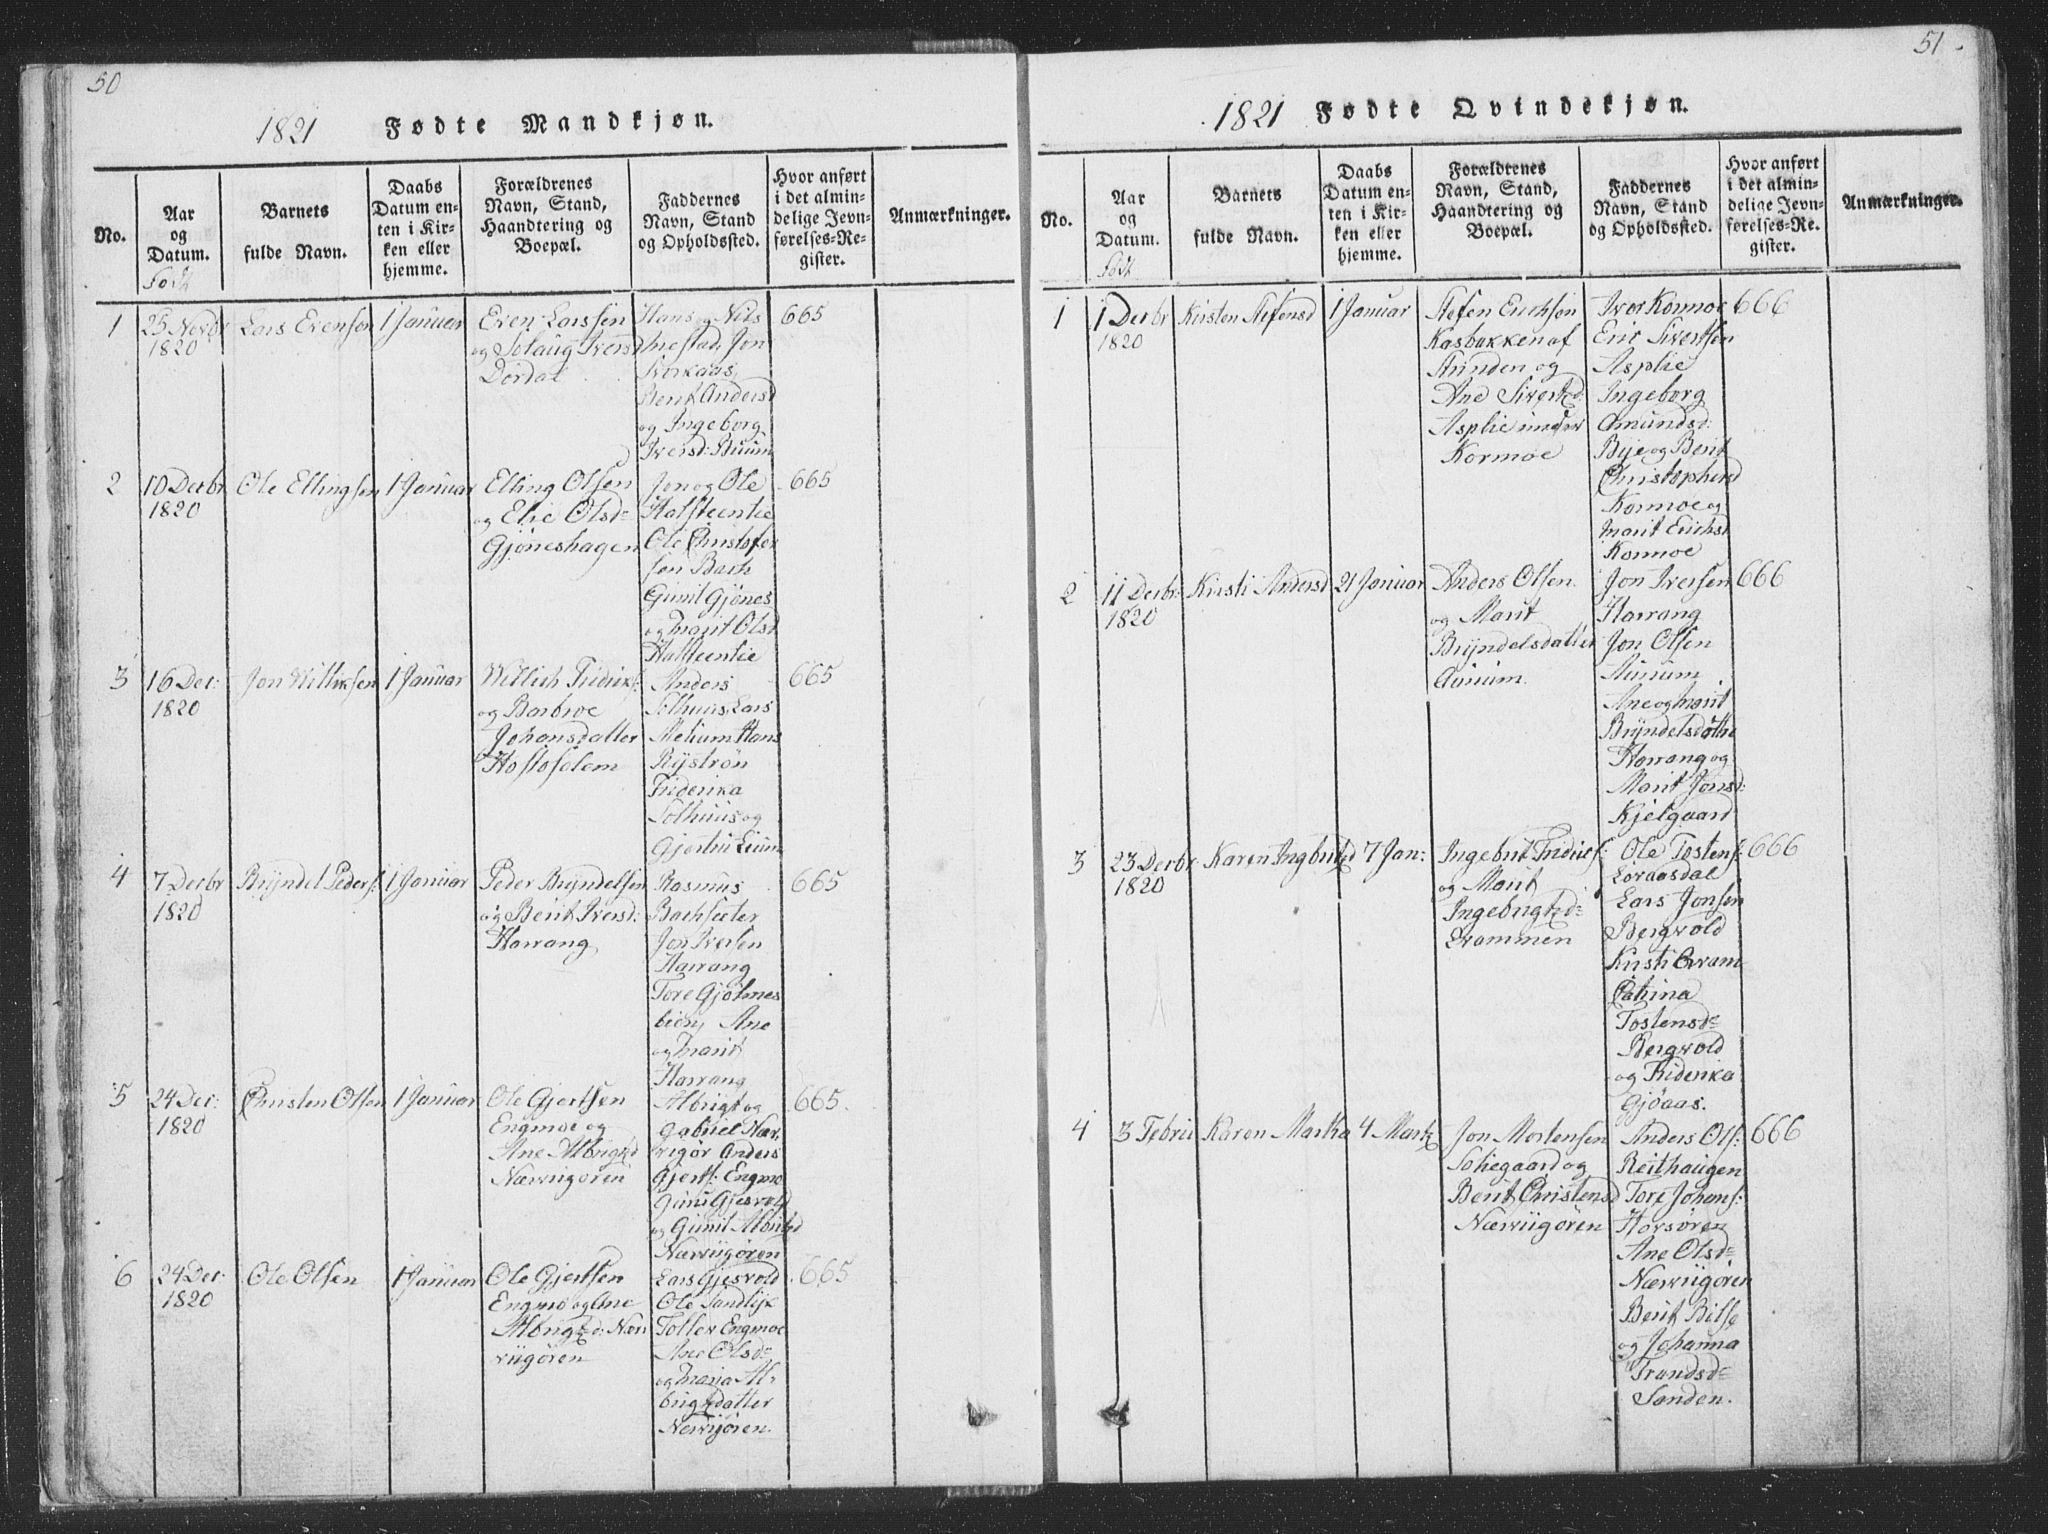 50
1821 Fødte Mandkjøn.
No.
Aar
og
Datum.
Født
Barnets
fulde Navn.
Daabs
Datum en-
ten i Kir-
ken eller
hjemme.
Forældrenes
Navn, Stand,
Haandtering og
Boepæl.
Faddernes
Navn, Stand
og Opholdssted.
Hvor anført
i det almin-
delige Jevn-
førelses-Re-
gister.
Anmærkninger.
1
25 Novbr
1820
Lars Evensøn
1 Januar
Even Larssen
og Solaug Iversd
Dørdal
Hans og Nils
Mestad, Jon
Storkaas
Berit Andersd
og Ingeborg
Iversd: Buum
665
2
10 Decbr
1820
Ole Ellingsen
1 Januar
Elling Olsen
og Elie Olsd=
Gjøneshagen
Jon og Ole
Halsteenlie
Ole Christofer
sen Bach
Gunil Gjønes
og Marit Olsd
Halsteenlie
665
3
16 Dec:
1820
Jon Willichsen
1 Januar
Willich Fridrichs:
og Barbroe
Johansdatter
Hostoselem
Anders
Solhuus, Lars
Melium Hans
Rystrøn
Friderika
Solhuus og
Gjertru Lium
665
4
7 Decbr
1820
Bryndel Peders:
1 Januar
Peder Bryndelsen
og Berit Iversd:
Harrang
Rasmus
Bachseter
Jon Iversen
Harrang
Tore Gjølmes
bien, Ane
og Marit
Harrang
665
5
24 Dec:
1820
Christen Olsen
1 Januar
Ole Gjertsen
Engmoe og
Ane Albrigtd
Nærviigøren
Albrigt og
Gabriel Nær,
vigør Anders
Gjerts: Engmo
Guru Gjesvold
og Gunil Albrigtd
Nærviigøren
665.
6
24 Dec:
1820
Ole Olsen
1 Januar
Ole Gjertsen
Engmo og Ane
Albrigtd: Nær
viigøren
Lars Gjesvold
Ole Sandlyk
Toller Engmoe
Ane Olsd=
og Maria Al-
brigtdatter
Nerviigøren.
665
51.
1821 Fødte Qvindekjøn.
No.
Aar
og
Datum.
Født
Barnets
fulde Navn.
Daabs
Datum en-
ten i Kir-
ken eller
hjemme.
Forældrenes
Navn, Stand,
Haandtering og
Boepæl.
Faddernes
Navn, Stand
og Opholdssted.
Hvor anført
i det almin-
delige Jevn-
førelses-Re-
gister.
Anmærkninger.
1
1 Decbr
1820
Kirsten Stefensd
1 Januar
Stefen Erichsøn
Kasbakken af
Stunden og
Ane Sivertsd:
Asplie under
Kormoe
Iver Kormoe
Eric Sivertsen
Asplie
Ingeborg
Amundsd:
Bye og Berit
Christophersd
Kormoe og
Marit Erichsd
Kormoe
666
2
11 Decbr:
1820
Kirsti Andersd
21 Januar
Anders Olsen
og Marit
Bryndelsdatter
Aunum
Jon Iversen
Harrang
Jon Olsen
Aunum
Ane og Marit
Bryndelsdøttre
Harrang og
Marit Jonsd:
Kjelgaard
666
3
23 Decbr
1820
Karen Ingbrigtd
7 Jan:
Ingebrit Fridrics:
og Marit
Ingebrigtd=
Evammen
Ole Tostens:
Loraasdal
Lars Jonsen
Bergvold
Kirsti Qvam
Cahina
Tostensd=
Bergvold
og Friderika
Gjøaas.
666
4
3 Febru
Karen Marka
4 Martz
Jon Mortensen
Soliegaard og
Berit Christensd
Nærviigøren
Anders Ols:
Reithaugen
Tore Johans:
Horsøren
Ane Olsd=
Nærviigøren
Berit Bilse
og Johanna
Trondsd=
Sanden.
666